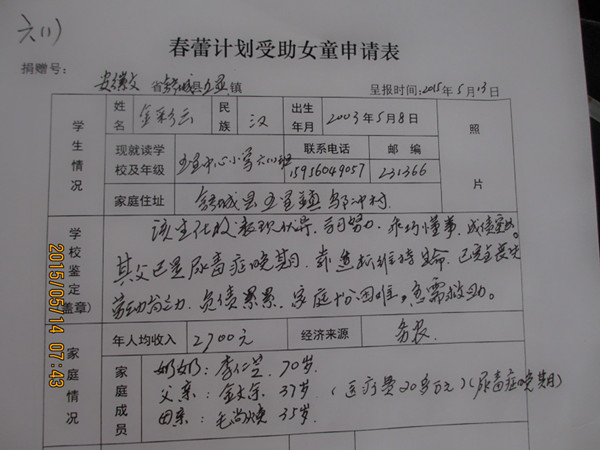 六(1)
春蕾计划受助女童申请表
捐赠号：
安徽 省 舒城 县 五显 镇 呈报时间：2015年5月13日
学生情况
姓名 金彩云 民族 汉 出生年月 2003年5月8日 照片
现就读学校及年级 五显中心小学六(1)班 联系电话 15956049057 邮编 231366
家庭住址 舒城县五显镇 冲村
学校鉴定(盖章)
该生在校表现优异，学习努力，乖巧懂事，成绩突出。
其父已是尿毒症晚期，靠透析维持生命，已完全丧失
劳动能力，负债累累，家庭十分困难，急需救助。
家庭情况
年人均收入 2700元 经济来源 务农
家庭成员
奶奶：李仁兰 70岁
父亲：金 37岁 (医疗费20多万元)(尿毒症晚期)
母亲：毛尚 35岁
2015/05/14 07:43